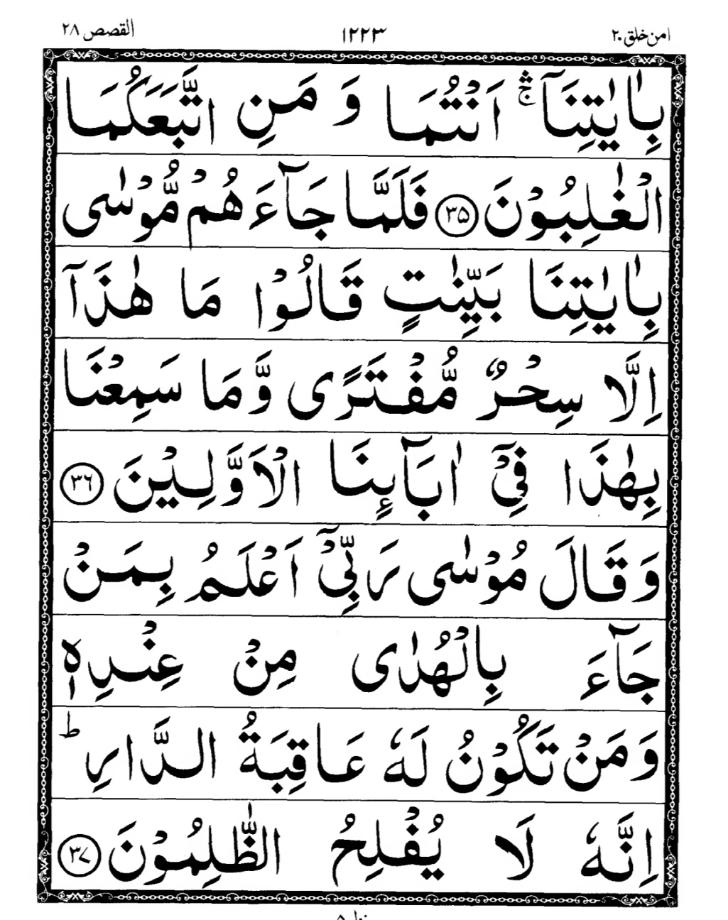 امن خلق ۲۰ ۱۲۲۳ القصص ۲۸
بِاٰيٰتِنَاۤ ۚۛ اَنْتُمَا وَ مَنِ اتَّبَعَكُمَا
الْغٰلِبُوْنَ ﴿۳۵﴾ فَلَمَّا جَآءَهُمْ مُّوْسٰى
بِاٰيٰتِنَا بَيِّنٰتٍ قَالُوْا مَا هٰذَاۤ
اِلَّا سِحْرٌ مُّفْتَرًى وَّمَا سَمِعْنَا
بِهٰذَا فِيْۤ اٰبَآئِنَا الْاَوَّلِيْنَ ﴿۳۶﴾
وَقَالَ مُوْسٰى رَبِّيْۤ اَعْلَمُ بِمَنْ
جَآءَ بِالْهُدٰى مِنْ عِنْدِهٖ
وَمَنْ تَكُوْنُ لَهٗ عَاقِبَةُ الدَّارِ ؕ
اِنَّهٗ لَا يُفْلِحُ الظّٰلِمُوْنَ ﴿۳۷﴾